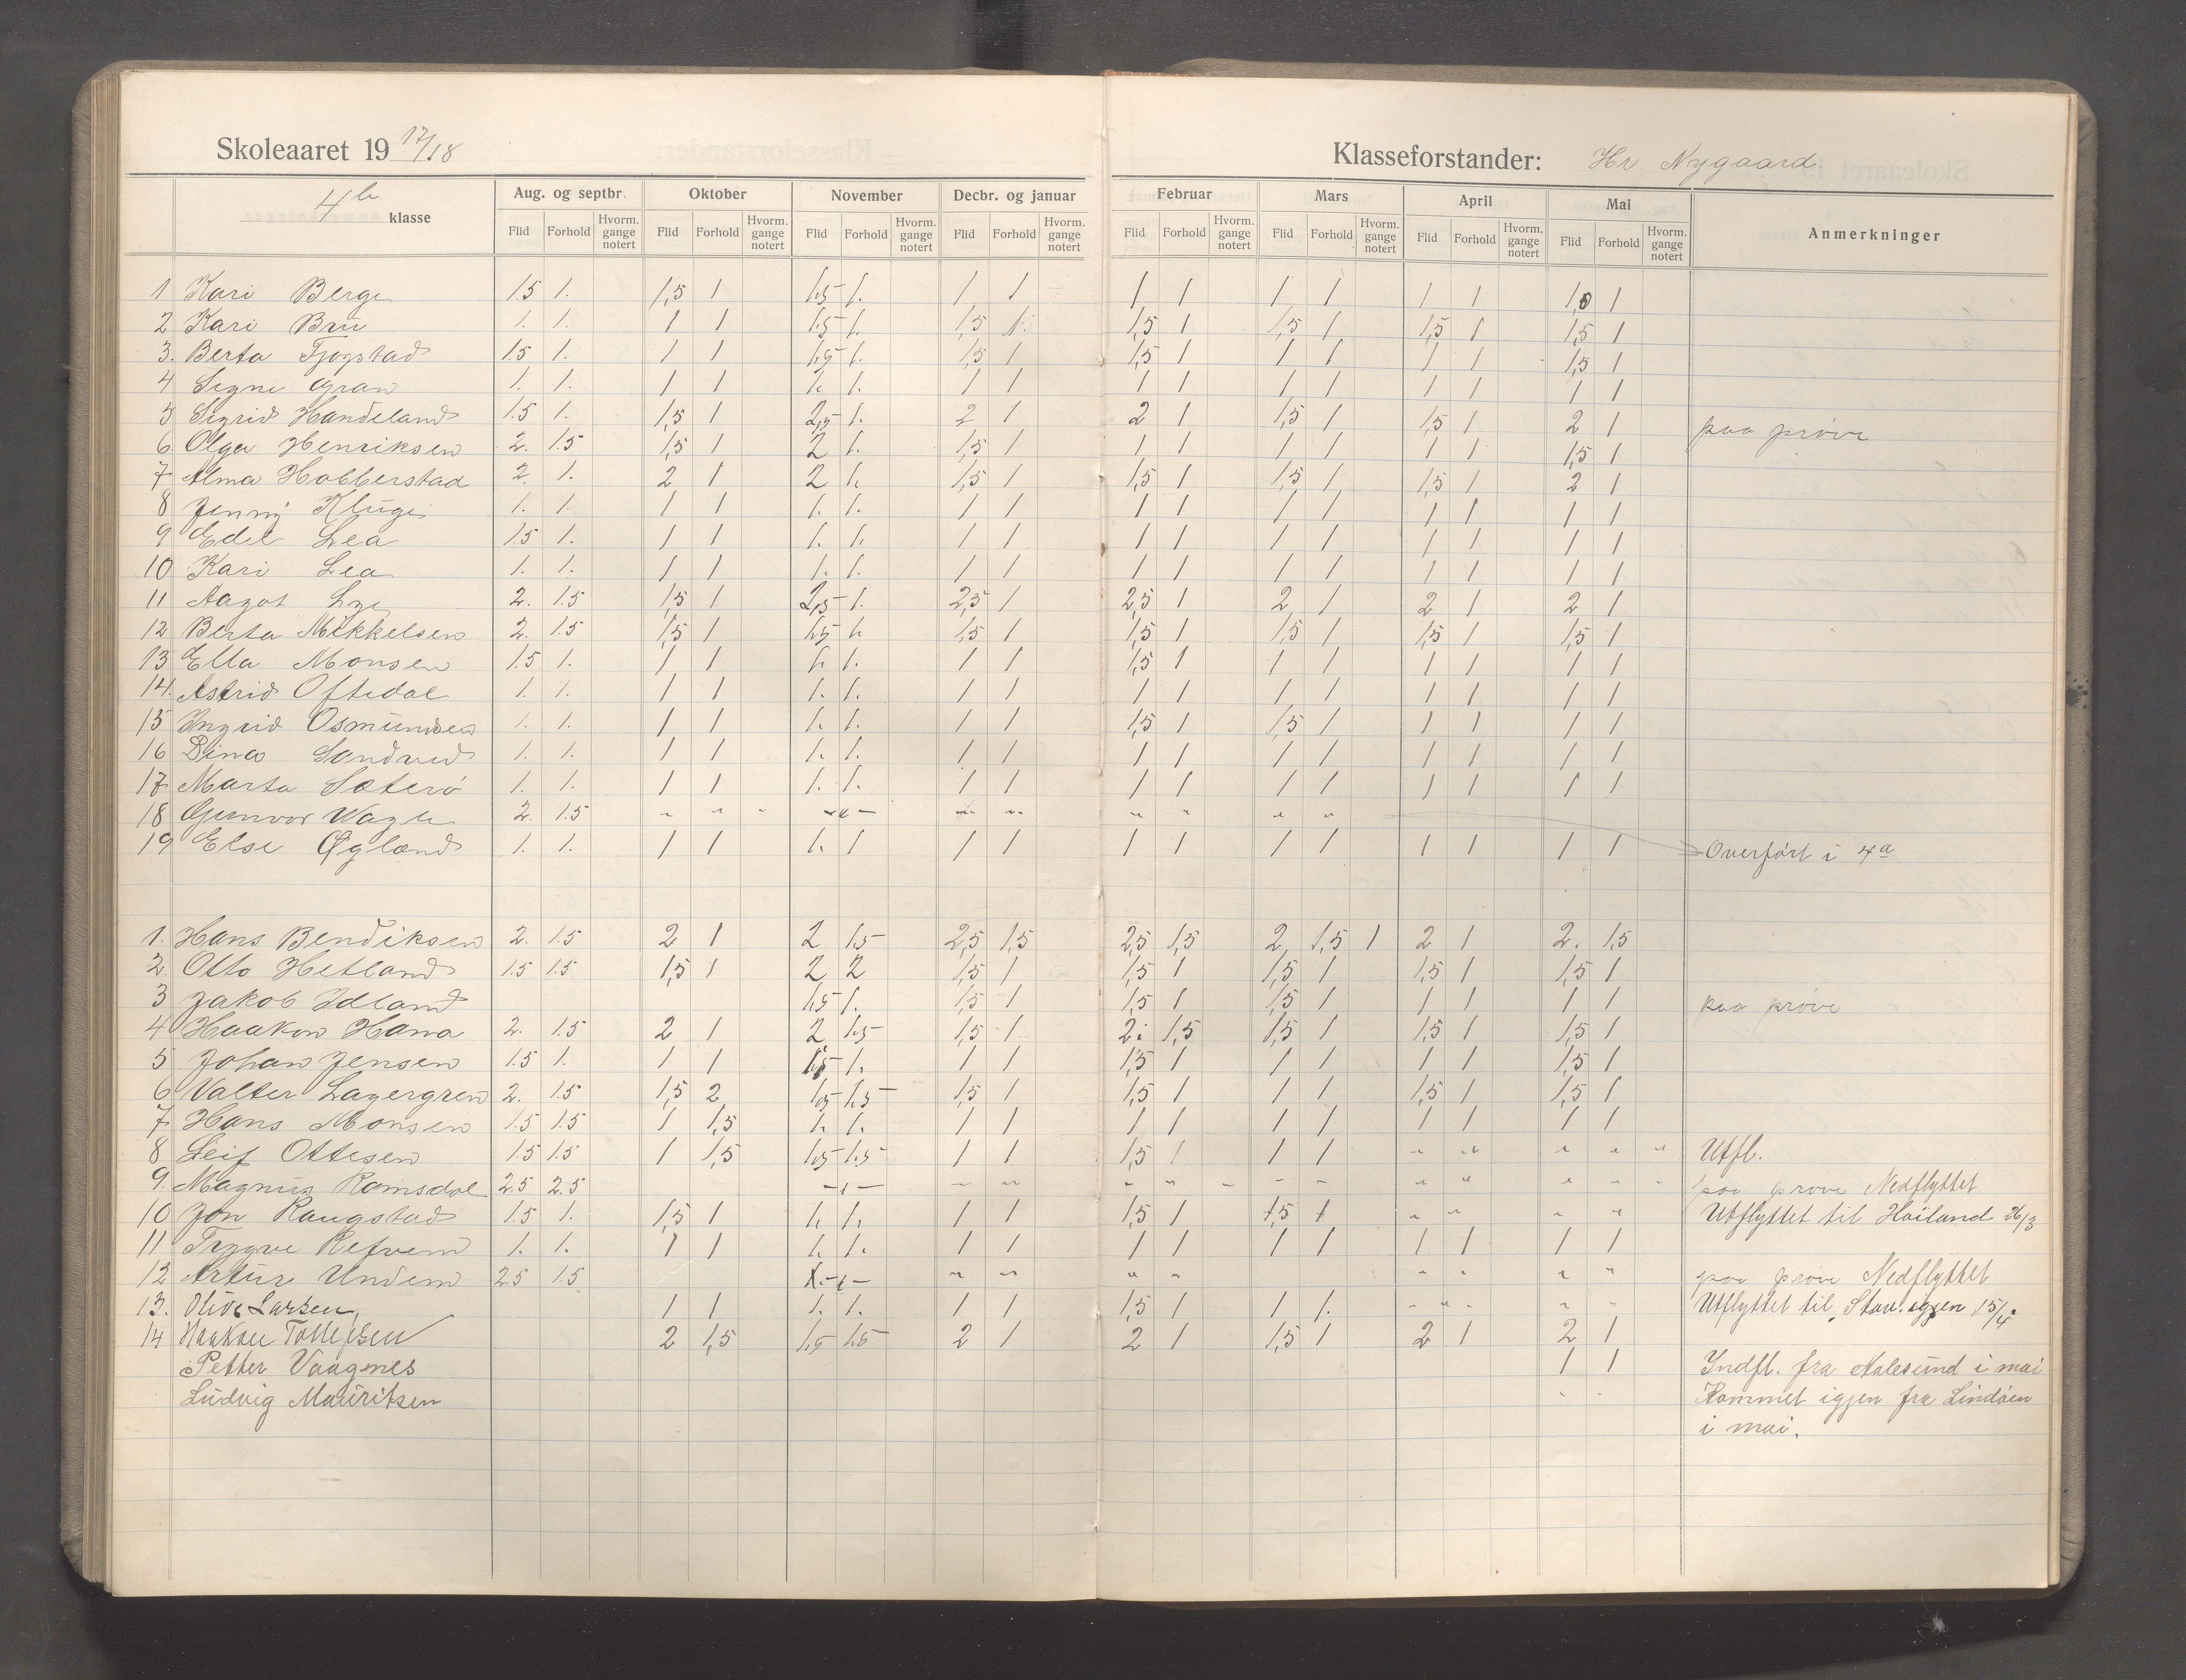 Skoleaaret 19 17/18
Klasseforstander: Hr Nygaard
4b klasse
Aug. og septbr. Oktober November Decbr. og januar Februar Mars April Mai Anmerkninger
Flid Forhold Hvorm. gange notert Flid Forhold Hvorm. gange notert Flid Forhold Hvorm. gange notert Flid Forhold Hvorm. gange notert Flid Forhold Hvorm. gange notert Flid Forhold Hvorm. gange notert Flid Forhold Hvorm. gange notert Flid Forhold Hvorm. gange notert
1 Kari Berge 1.5 1. 1,5 1 1.5 1. 1 1 1 1 1 1 1 1 1,0 1
2 Kari Bru 1. 1. 1 1 1.5 1. 1,5 1. 1,5 1 1,5 1 1,5 1 1,5 1
3. Berta Tjogstad 1.5 1. 1 1 1.5 1. 1,5 1 1,5 1 1 1 1 1 1,5 1
4 Signe Gran 1. 1. 1 1 1. 1. 1 1 1 1 1 1 1 1 1 1
5 Sigrid Handeland 1.5 1. 1,5 1 2,5 1. 2 1 2 1 1,5 1 1,5 1 2 1 paa prøve
6. Olga Henriksen 2. 1.5 1,5 1 2 1. 1,5 1 1 1 1 1 1 1 1,5 1
7 Alma Hobberstad 2. 1. 2 1 2 1. 1,5 1 1,5 1 1,5 1 1,5 1 2 1
8 Jenny Kluge 1. 1. 1 1 1. 1. 1 1 1 1 1 1 1 1 1 1
9 Edel Lea 1.5 1. 1 1 1. 1. 1 1 1 1 1 1 1 1 1 1
10 Kari Lea 1. 1. 1 1 1. 1. 1 1 1 1 1 1 1 1 1 1
11 Aagot Lye 2. 1.5 1,5 1 2,5 1. 2,5 1 2,5 1 2 1 2 1 2 1
12 Berta Mikkelsen 2. 1.5 1,5 1 1.5 1. 1,5 1 1,5 1 1,5 1 1,5 1 1,5 1
13 Ella Monsen 1.5 1. 1 1 1. 1. 1 1 1,5 1 1 1 1 1 1 1
14. Astrid Oftedal 1. 1. 1 1 1. 1. 1 1 1 1 1 1 1 1 1 1
15 Ingrid Osmundsen 1. 1. 1 1 1. 1. 1 1 1,5 1 1,5 1 1 1 1 1
16 Dina Sandved 1. 1. 1 1 1. 1. 1 1 1 1 1 1 1 1 1 1
17 Marta Sæterø 1. 1. 1 1 1. 1. 1 1 1 1 1 1 1 1 1 1
18 Gunvor Wagle 2. 1.5 " " " -"- " " " " " "
19 Else Øgland 1. 1. 1 1 1. 1 1 1 1 1 1 1 1 1 1 1 Overført i 4a
1. Hans Bendiksen 2. 1.5 2 1 2 1.5 2,5 1,5 2,5 1,5 2 1,5 1 2 1 2. 1.5
2. Otto Hetland 1.5 1.5 1,5 1 2 2 1,5 1 1,5 1 1,5 1 1,5 1 1,5 1
3 Jakob Idland 1.5 1. 1,5 1 1,5 1 1,5 1 1 1 1 1 paa prøve
4 Haakon Hana 2. 1.5 2 1 2 1.5 1,5 1 2 1,5 1,5 1 1,5 1 1,5 1
5 Johan Jensen 1.5 1. 1 1 1.5 1. 1 1 1,5 1 1 1 1 1 1,5 1
6 Valter Lagergren 2. 1.5 1,5 2 1.5 1.5 1,5 1 1,5 1 1 1 1,5 1 1,5 1
7 Hans Monsen 1.5 1.5 1 1,5 1. 1. 1 1 1 1 1 1 1 1 1 1
8 Leif Ottesen 1.5 1.5 1 1,5 1.5 1.5 1 1 1,5 1 1 1 " " " " " Utfl.
9. Magnus Ramsdal 2.5 2.5 -"- " " " " " " " " " " " " paa prøve Nedflyttet
10 Jon Raugstad 1.5 1. 1,5 1 1. 1. 1 1 1,5 1 1,5 1 " " " " Utflyttet til Høiland 26/3
11 Trygve Refvem 1. 1. 1 1 1. 1. 1 1 1 1 1 1 1 1 1 1
12 Artur Undem 2.5 1.5 -"- " " " " " " " " paa prøve Nedflyttet
13. Oliver Larsen 1 1 1. 1. 1 1 1,5 1 1 1. " " " " " Utflyttet til Stav. igjen 15/4.
14 Haakon Tollefsen 2 1,5 1,5 1.5 2 1 2 1 1,5 1 2 1 2 1
Petter Vaagnes 1 1 Indfl. fra Aalesund i mai
Ludvig Mauritsen " " Kommet igjen fra Lindøen
i mai.